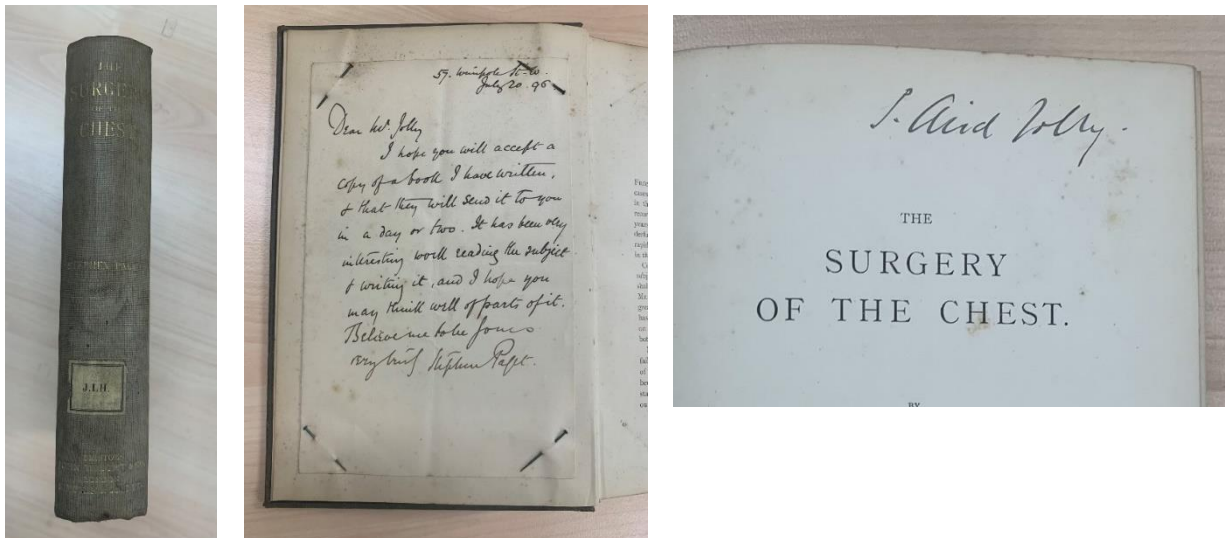 THE
SURGERY
OF THE
CHEST
STEPHEN PAGET
J.I.H.
57. Wimpole St. W.
July 20. 96
Dear Mr. Jolly
I hope you will accept a
copy of a book I have written,
& that they will send it to you
in a day or two. It has been very
interesting work reading the subject
& writing it, and I hope you
may think well of parts of it.
Believe me to be yours
very truly Stephen Paget.
J. Aird Jolly.
THE
SURGERY
OF THE CHEST.
BY